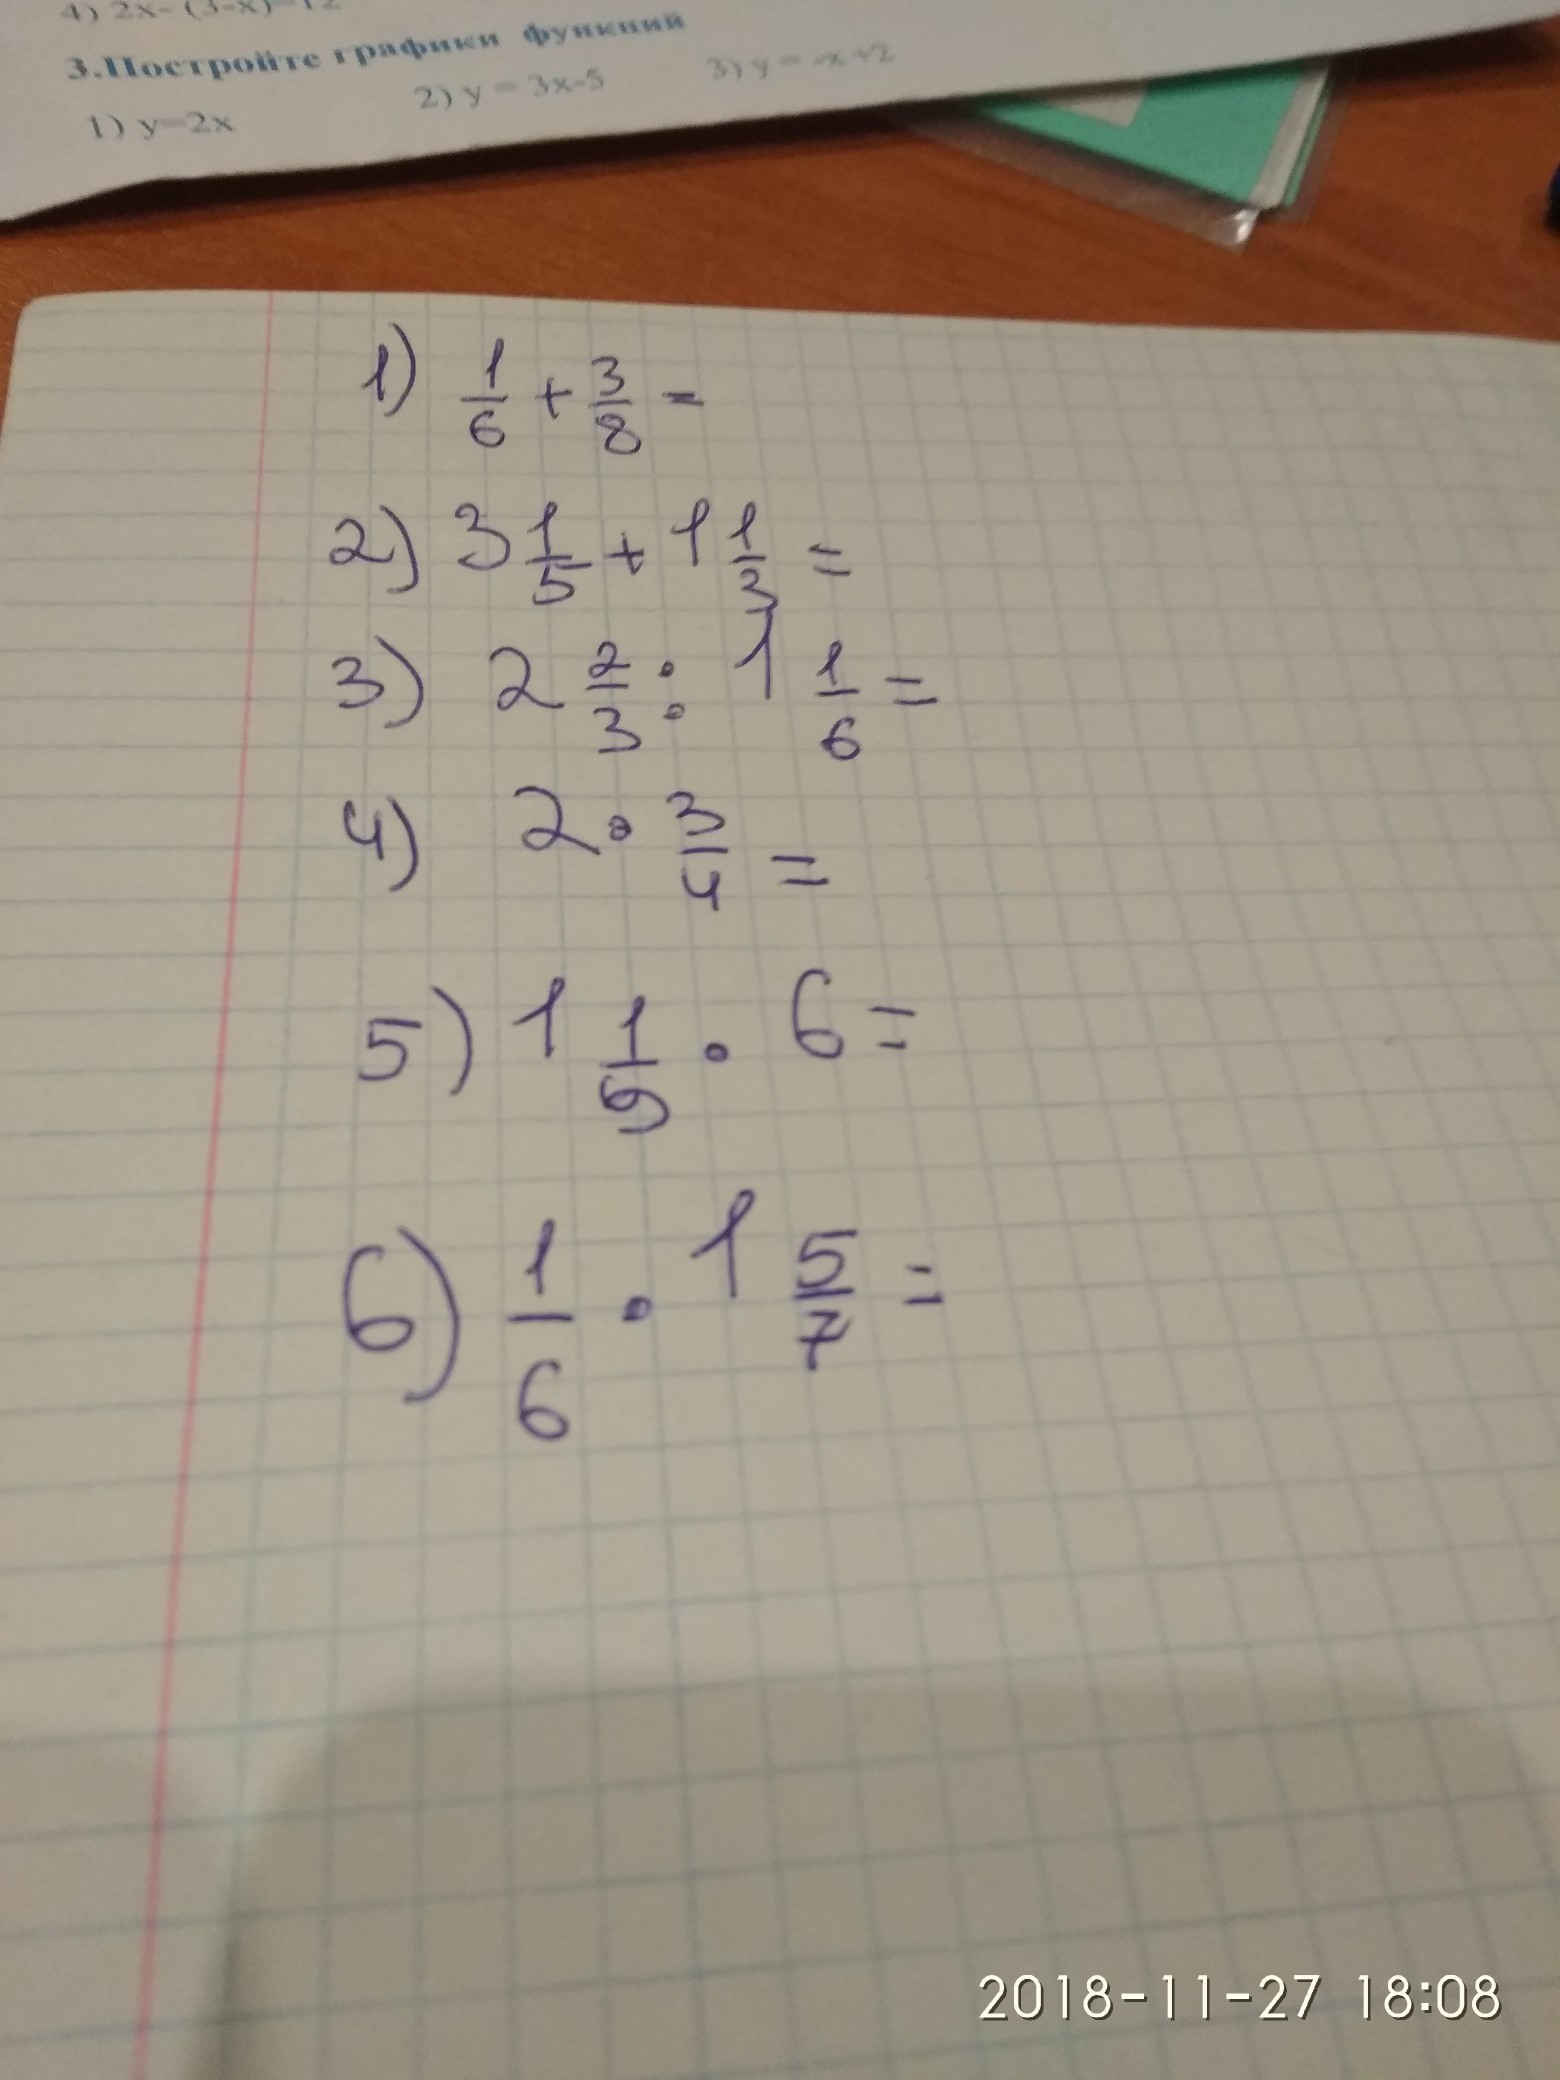 4) 2x- (3-x)=12
3.Постройте графики функций
1) y=2x 2) y = 3x-5 3) y = -x+2
1) 1/6 + 3/8 =
2) 3 1/5 + 1 1/3 =
3) 2 2/3 : 1 1/6 =
4) 2 • 3/4 =
5) 1 1/9 • 6 =
6) 1/6 • 1 5/7 =
2018-11-27 18:08